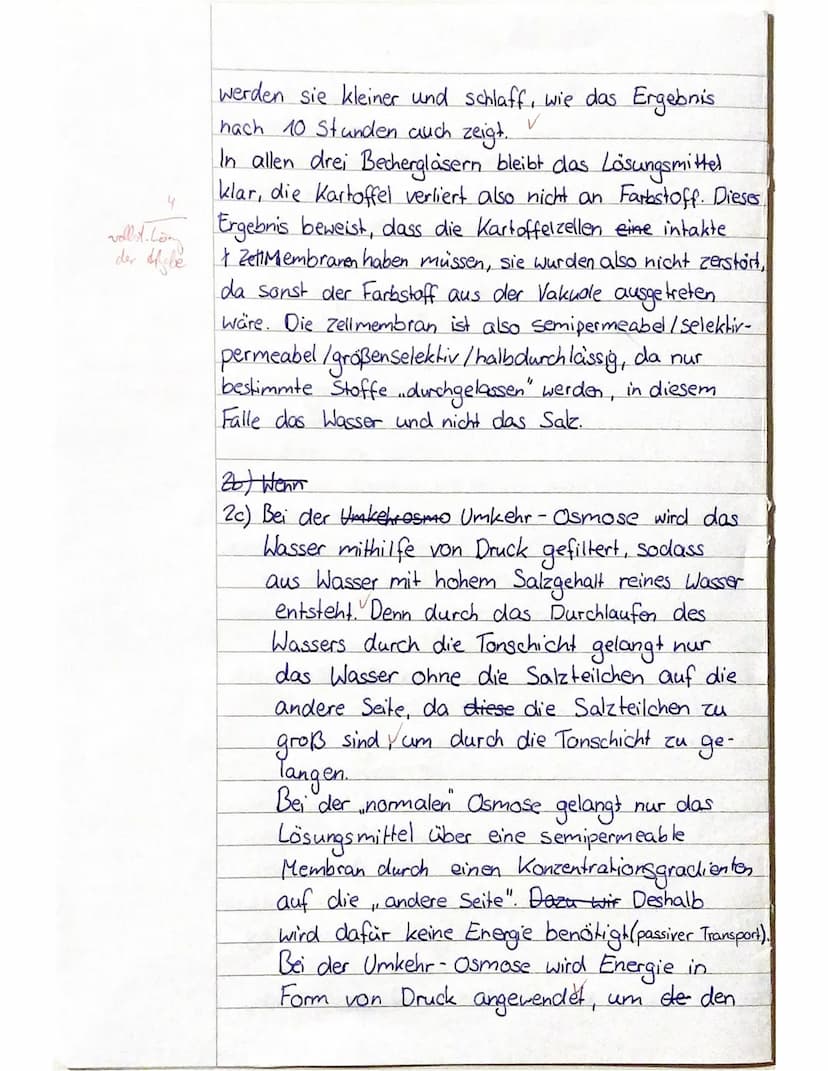 werden sie kleiner und schlaff, wie das Ergebnis
nach 10 Stunden auch zeigt.
In allen drei Bechergläsern bleibt das Lösungsmittel
klar, die Kartoffel verliert also nicht an Farbstoff. Dieses
4
Ergebnis beweist, dass die Kartoffelzellen eine intakte
vollst. Lösg
der
Zellmembranen haben müssen, sie wurden also nicht zerstört,
da sonst der Farbstoff aus der Vakuole ausgetreten
wäre. Die Zellmembran ist also semipermeabel/selektiv-
permeabel/größenselektiv/halbdurchlässig, da nur
bestimmte Stoffe „durchgelassen" werden, in diesem
Falle das Wasser und nicht das Salz.
2b) Wenn
2c) Bei der Umkehrosmo Umkehr-Osmose wird das
Wasser mithilfe von Druck gefiltert, sodass
aus Wasser mit hohem Salzgehalt reines Wasser
entsteht. Denn durch das Durchlaufen des
Wassers durch die Tonschicht gelangt nur
das Wasser ohne die Salzteilchen auf die
andere Seite, da diese die Salzteilchen zu
groß sind um durch die Tonschicht zu ge-
langen.
Bei der „normalen" Osmose gelangt nur das
Lösungsmittel über eine semipermeable
Membran durch einen Konzentrationsgradienten
auf die „andere Seite". Dazu wir Deshalb
wird dafür keine Energie benötigt(passiver Transport).
Bei der Umkehr-Osmose wird Energie in
Form von Druck angewendet, um de den